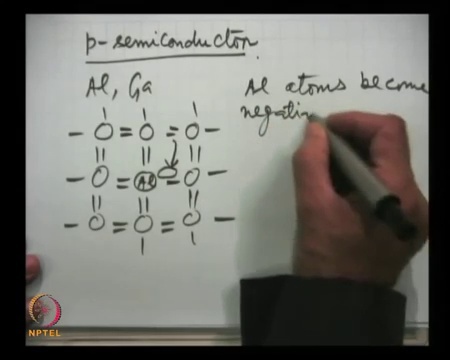 p-semiconductor.
Al, Ga
Al atoms become
negativ
Al
NPTEL